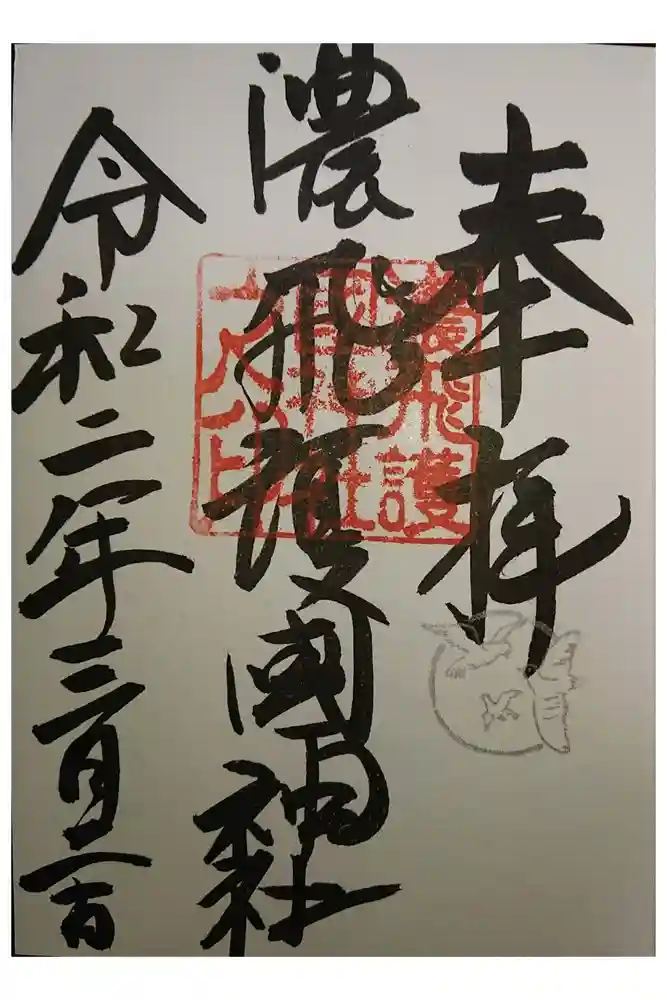 奉拝
濃飛護國神社
令和二年三月二日
濃飛護
國神社